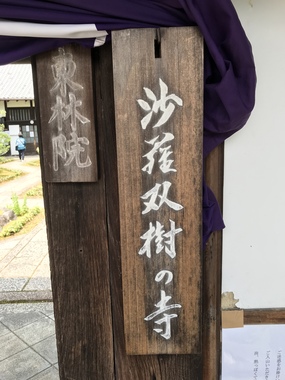 沙羅双樹の寺
東林院